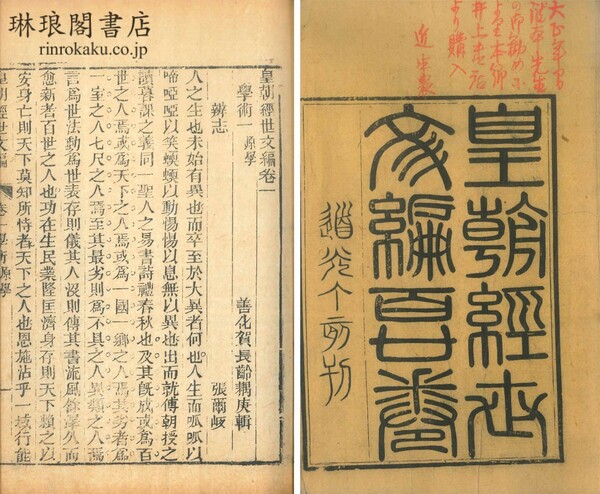 琳琅閣書店
rinrokaku.co.jp
皇朝經世文編卷一
善化賀長齡耦庚輯
學術一 原學
辨志 張爾岐
人之生也未始有異也而卒至於大異者何也人生而呱呱以
啼啞啞以笑蝡蝡以動惕惕以息無以異也出而就傅朝授之
讀暮課之義同一聖人之易書詩禮春秋也及其旣成或為百
世之人焉或為天下之人焉或為一國一鄉之人焉其劣者為
一室之人七尺之人焉至其最劣則為不具之人異類之人焉
言為世法動為世表存則儀其人沒則傳其書流風餘澤久而
愈新者百世之人也功在生民業隆匡濟身存則天下賴之以
安身亡則天下莫知所恃者天下之人也恩施沾乎一域行能
皇朝經世文編 卷一學術 原學 一
皇朝經世
文編百卷
道光丁亥刊
大正
より購入